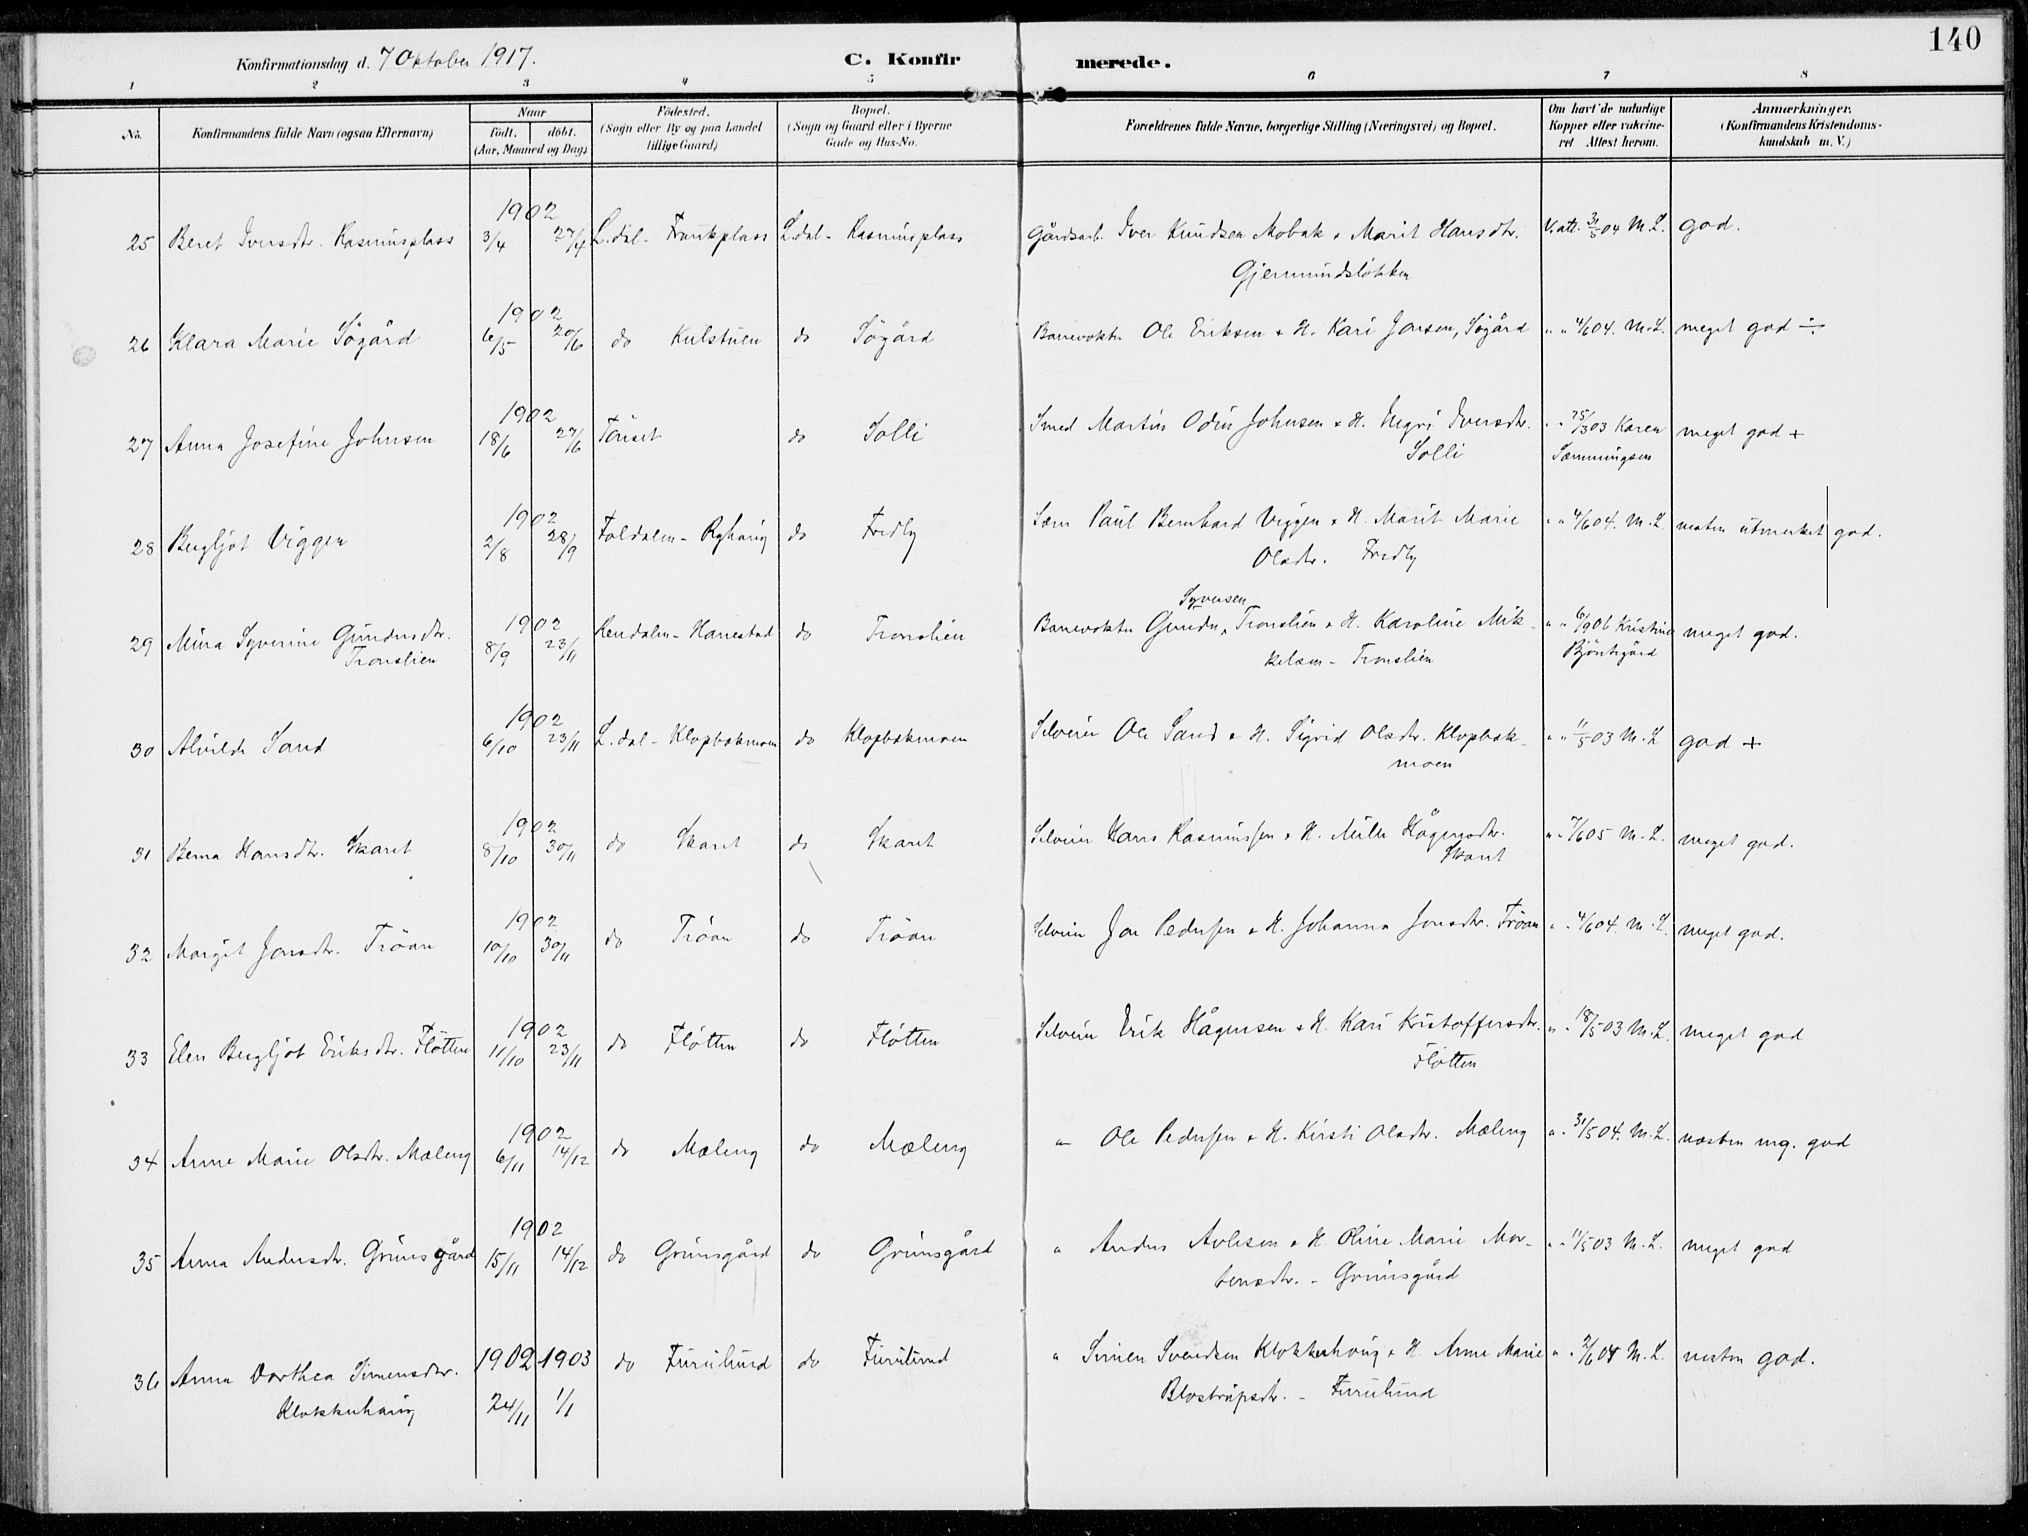 140
Konfirmationsdag d. 7 Oktober 1917.
C. Konfirmerede.
1 2 3 4 5 6 7 8
No. Konfirmandens fulde Navn (ogsaa Efternavn) Naar født. døbt. (Aar, Maaned og Dag) Fødested. (Sogn eller By og paa Landet tillige Gaard) Bopæl. (Sogn og Gaard eller i Byerne Gade og Hus-No. Forældrenes fulde Navne, borgerlige Stilling (Næringsvei) og Bopæl. Om havt de naturlige Kopper eller vakcineret Attest herom. Anmærkninger. (Konfirmandens Kristendomskundskab m. V.)
25 Beret Iversdtr. Rasmusplass 1902 3/4 27/4 L.dal - Traukplass L.dal - Rasmusplass Gårdsarb. Iver Knudsen Mobak & Marit Hansdtr. V. att. 31/5 04 M. L. god.
Gjermundsløkken
26 Klara Marie Søgård 1902 6/5 20/6 do Kulstuen do Søgård Banevokter Ole Eriksen & H. Kari Jonsen, Søgård " " 4/6 04. M. L. meget god ÷
27 Anna Josefine Johnsen 1902 18/6 27/6 Tønset do Solli Smed Martin Odin Johnsen & H. Ingri Iversdtr. " " 25/3 03 Karen meget god +
Solli Sæmmingsen
28 Bergljot Viggen 1902 2/8 28/9 Foldalen - Ryhaug do Fredly Sæm Paul Bernhard Viggen & H. Marit Marie " " 4/6 04. M. L. nesten utmerket god.
Olsdtr. Fredly
29 Mina Syverine Gundersdtr. 1902 8/9 23/11 Rendalen - Hanestad do Tronslien Banevokter Gunder Syversen Tronslien & H. Karoline Mik- " " 6/9 06 Kristine meget god.
Tronslien kelsen - Tronslien Bjøntegård
30 Alvilde Sand 1902 6/10 23/11 L.dal - Klopbakmoen do Klopbakmoen Selveier Ole Sand & H. Sigrid Olsdtr. Klopbak- " " 11/5 03 M. L god +
moen
31 Berna Hansdtr. Skaret 1902 8/10 30/11 do Skaret do Skaret Selveier Hans Rasmussen & H. Milla Hågensdtr. " " 7/6 05 M. L. meget god.
Skaret
32 Margit Jonsdtr. Trøan 1902 10/10 30/11 do Trøan do Trøan Selveier Jon Pedersen & H. Johanna Jonsdtr. Trøan " " 4/6 04. M. L. meget god.
33 Elen Bergljot Eriksdtr. Fløtten 1902 11/10 23/11 do Fløtten do Fløtten Selveier Erik Hågensen & H. Kari Kristoffersdtr. " " 18/5 03 M. L. meget god
Fløtten
34 Anne Marie Olsdtr. Mæleng 1902 6/11 14/12 do Mæleng do Mæleng " Ole Pedersen & H. Kirsti Olsdtr. Mæleng " " 31/5 04. M. L. næsten mg. god
35 Anna Andersdtr. Grimsgård 1902 15/11 14/12 do Grimsgård do Grimsgård " Anders Avlesen & H. Oline Marie Mor- " " 11/5 03 M. L. meget god
tensdtr. - Grimsgård
36 Anna Dorthea Simensdtr. 1902 1903 do Furulund do Furulund " Simen Svendsen Klokkerhaug & H. Anne Marie " " 2/6 04 M. L. nesten god.
Klokkerhaug 24/11 1/1 Blostrupsdtr. - Furulund